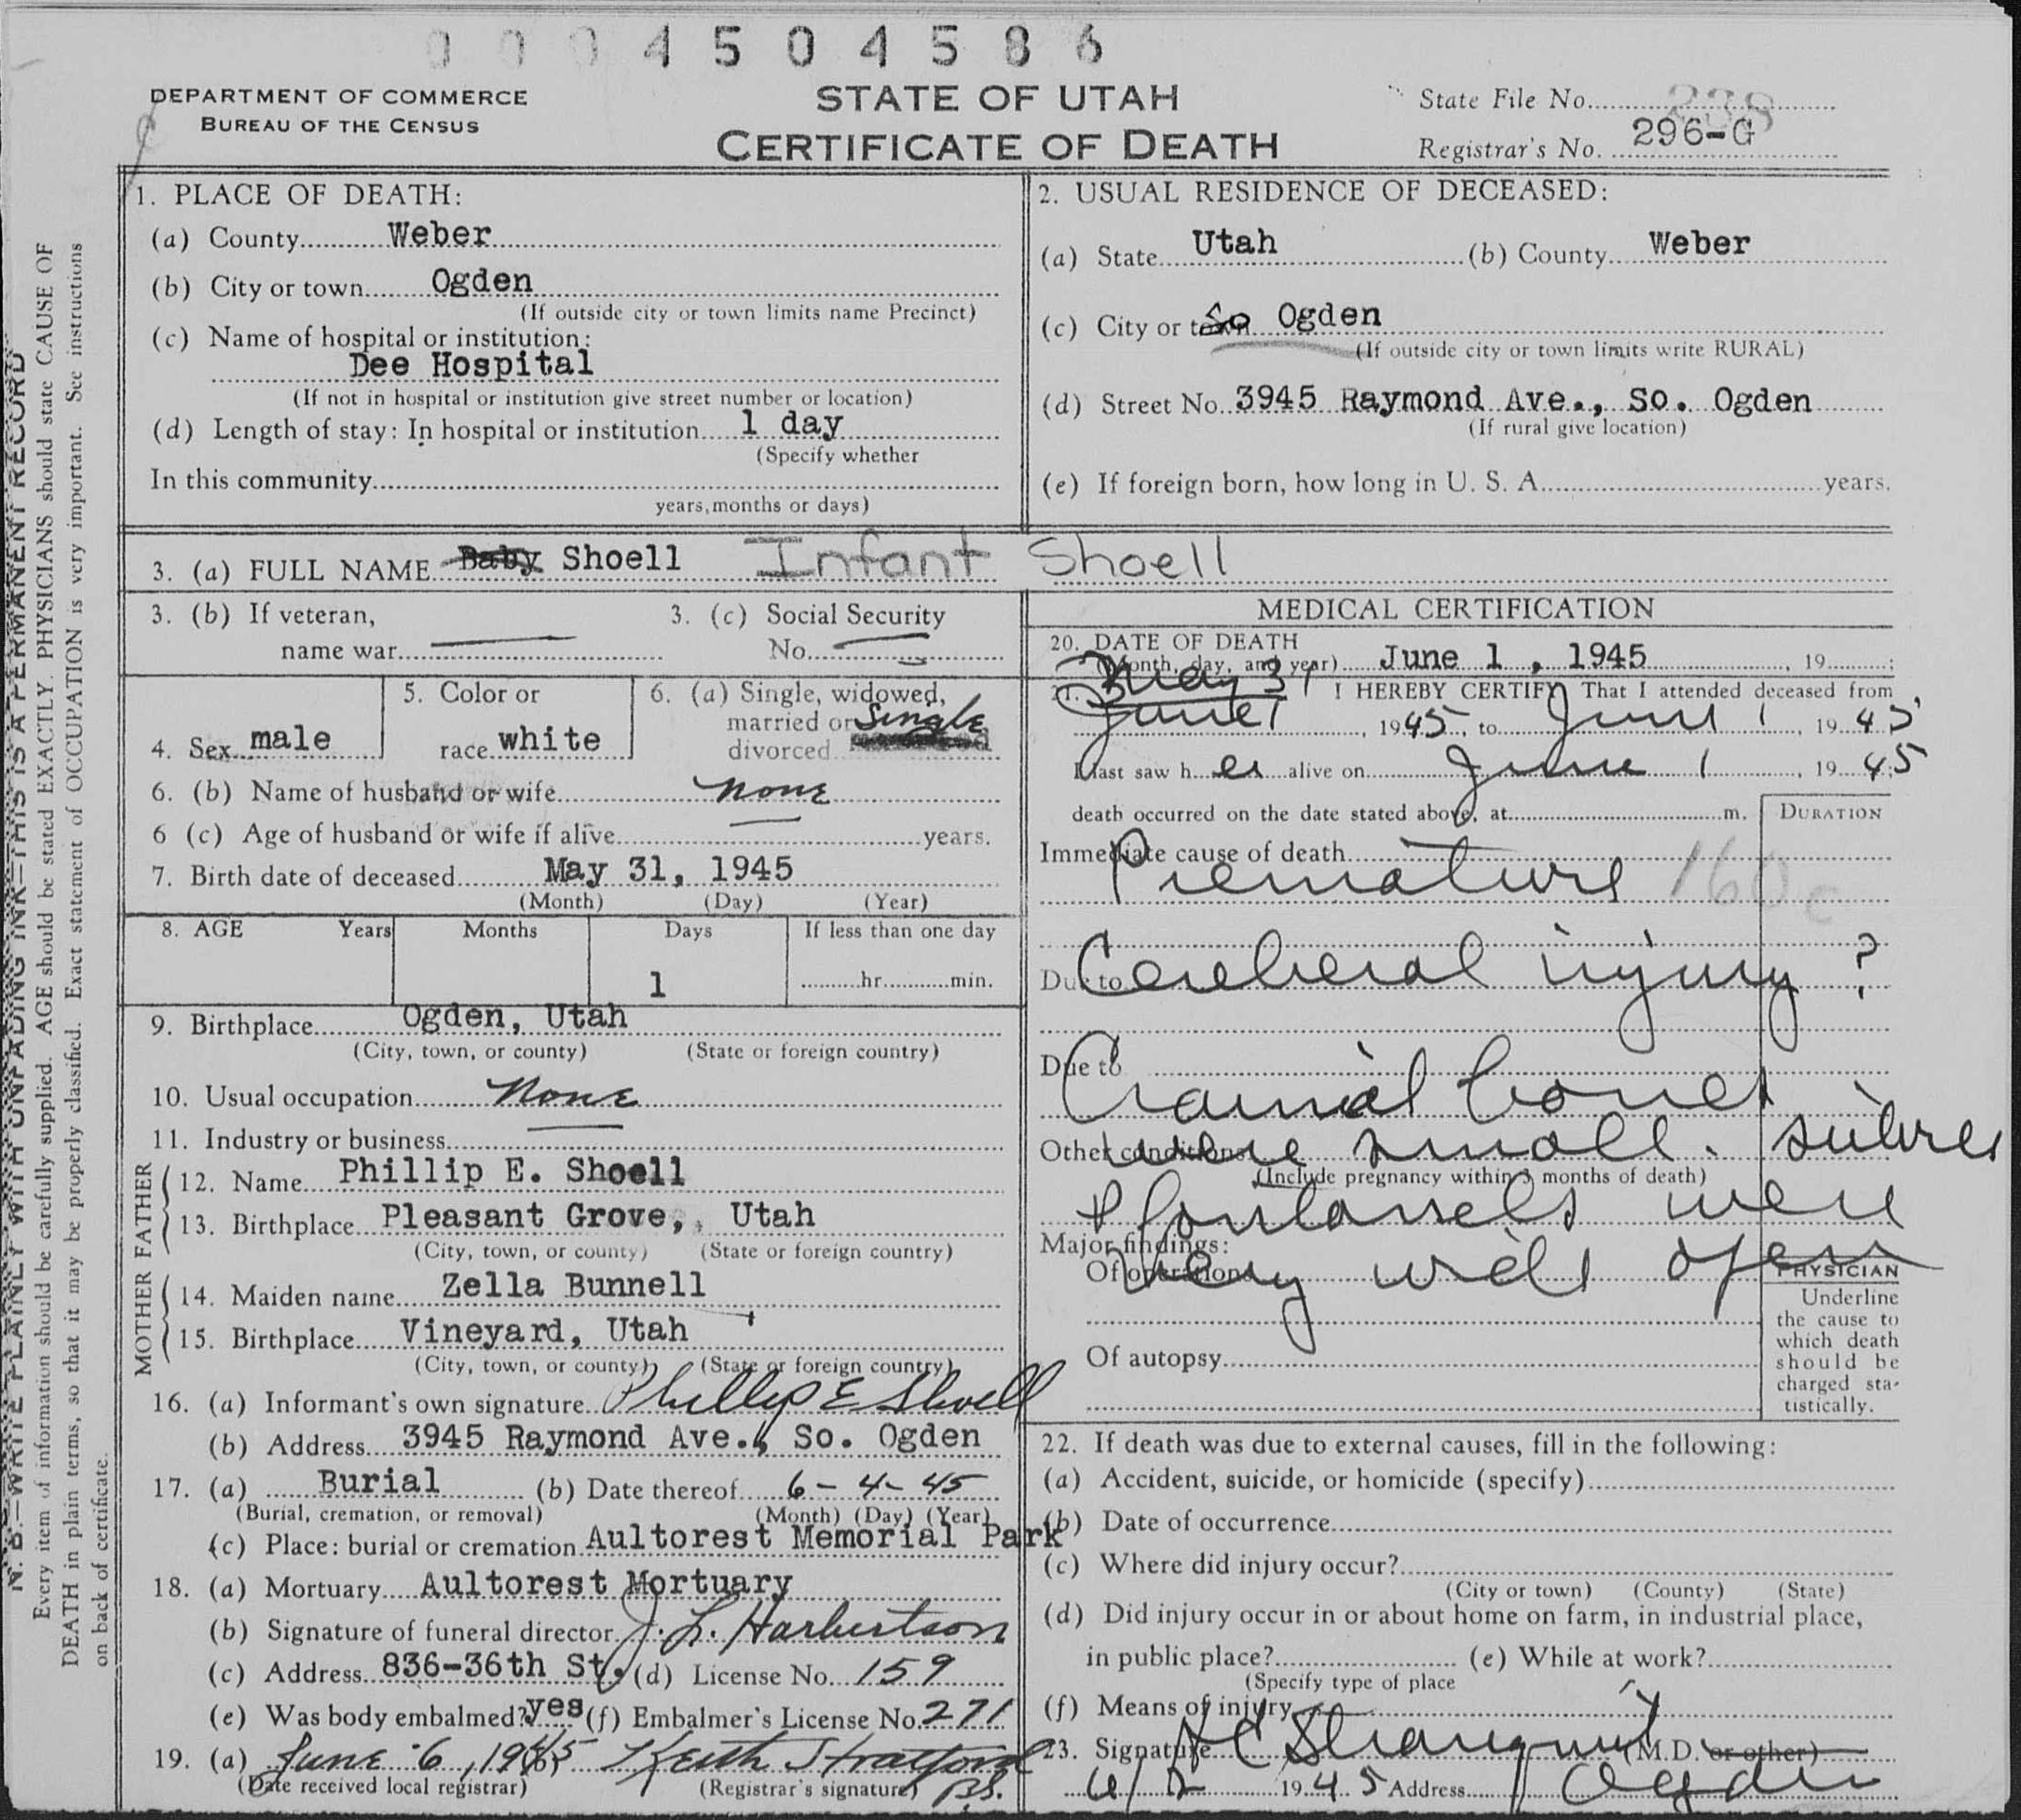 0004504586
DEPARTMENT OF COMMERCE
BUREAU OF THE CENSUS
STATE OF UTAH
CERTIFICATE OF DEATH
State File No. 238
Registrar's No. 296-G
1. PLACE OF DEATH:
(a) County Weber
(b) City or town Ogden
(If outside city or town limits name Precinct)
(c) Name of hospital or institution:
Dee Hospital
(If not in hospital or institution give street number or location)
(d) Length of stay: In hospital or institution 1 day
(Specify whether
In this community
years, months or days)
2. USUAL RESIDENCE OF DECEASED:
(a) State Utah (b) County Weber
(c) City or town So Ogden
(If outside city or town limits write RURAL)
(d) Street No. 3945 Raymond Ave., So. Ogden
(If rural give location)
(e) If foreign born, how long in U. S. A. years.
3. (a) FULL NAME Baby Shoell Infant Shoell
3. (b) If veteran,
name war
3. (c) Social Security
No.
4. Sex male
5. Color or
race white
6. (a) Single, widowed,
married or Single
divorced
6. (b) Name of husband or wife none
6 (c) Age of husband or wife if alive years.
7. Birth date of deceased May 31, 1945
(Month) (Day) (Year)
8. AGE Years Months Days If less than one day
1 hr. min.
9. Birthplace Ogden, Utah
(City, town, or county) (State or foreign country)
10. Usual occupation None
11. Industry or business
FATHER
12. Name Phillip E. Shoell
13. Birthplace Pleasant Grove, Utah
(City, town, or county) (State or foreign country)
MOTHER
14. Maiden name Zella Bunnell
15. Birthplace Vineyard, Utah
(City, town, or county) (State or foreign country)
16. (a) Informant's own signature Phillip E Shoell
(b) Address 3945 Raymond Ave., So. Ogden
17. (a) Burial (b) Date thereof 6-4-45
(Burial, cremation, or removal) (Month) (Day) (Year)
(c) Place: burial or cremation Aultorest Memorial Park
18. (a) Mortuary Aultorest Mortuary
(b) Signature of funeral director J. L. Harbertson
(c) Address 836-36th St. (d) License No. 159
(e) Was body embalmed? yes (f) Embalmer's License No. 271
19. (a) June 6, 1945 Keith Stratford
(Date received local registrar) (Registrar's signature)
MEDICAL CERTIFICATION
20. DATE OF DEATH
(Month, day, and year) June 1, 1945, 19 ;
21. May 31 I HEREBY CERTIFY, That I attended deceased from
June 1, 1945, to June 1, 1945
I last saw h er alive on June 1, 1945
death occurred on the date stated above, at m. DURATION
Immediate cause of death
Premature 160c
Due to Cerebral injury ?
Due to
Cranial bones
Other conditions were small. sutures
(Include pregnancy within 3 months of death)
& fontanels were
Major findings:
Of operations very wide open
PHYSICIAN
Underline
the cause to
which death
should be
charged sta-
tistically.
Of autopsy
22. If death was due to external causes, fill in the following:
(a) Accident, suicide, or homicide (specify)
(b) Date of occurrence
(c) Where did injury occur?
(City or town) (County) (State)
(d) Did injury occur in or about home on farm, in industrial place,
in public place? (e) While at work?
(Specify type of place
(f) Means of injury
23. Signature (M.D. or other)
6/2 1945 Address Ogden
N. B.—WRITE PLAINLY WITH UNFADING INK—THIS IS A PERMANENT RECORD
Every item of information should be carefully supplied. AGE should be stated EXACTLY. PHYSICIANS should state CAUSE OF
DEATH in plain terms, so that it may be properly classified. Exact statement of OCCUPATION is very important. See instructions
on back of certificate.